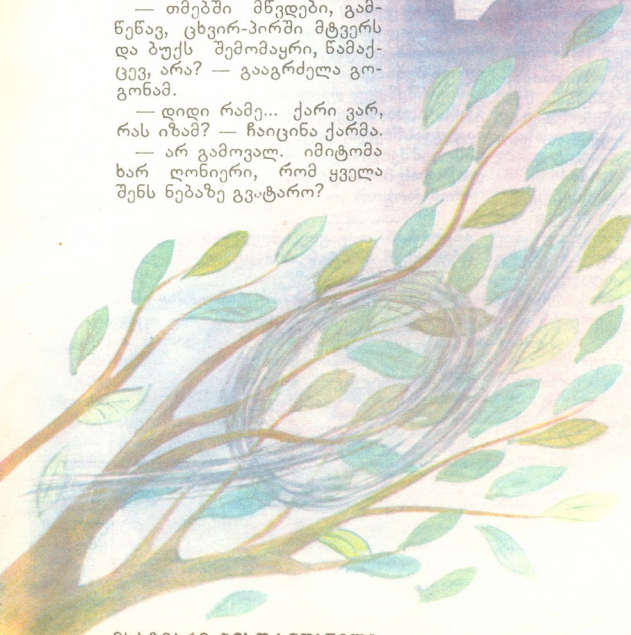 — თმებში მწვდები, გამ-
წეწავ, ცხვირ-პირში მტვერს
და ბუქს შემომაყრი, წამაქ-
ცევ, არა? — გააგრძელა გო-
გონამ.
— დიდი რამე... ქარი ვარ,
რას იზამ? — ჩაიცინა ქარმა.
— არ გამოვალ. იმიტომა
ხარ ღონიერი, რომ ყველა
შენს ნებაზე გვატარო?